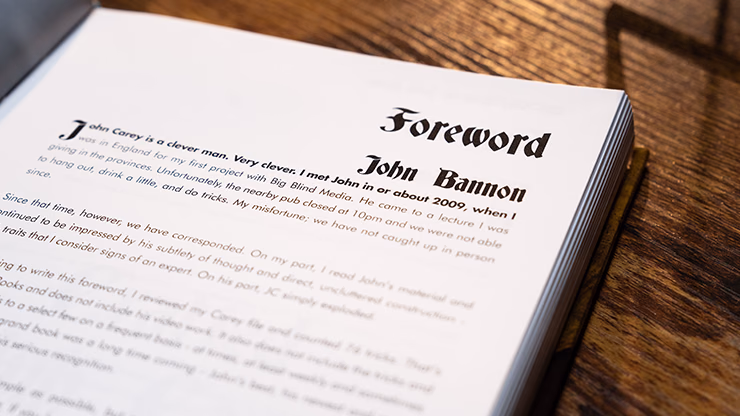 Foreword
John Bannon
John Carey is a clever man. Very clever. I met John in or about 2009, when I
was in England for my first project with Big Blind Media. He came to a lecture I was
giving in the provinces. Unfortunately, the nearby pub closed at 10pm and we were not able
to hang out, drink a little, and do tricks. My misfortune; we have not caught up in person
since.
Since that time, however, we have corresponded. On my part, I read John's material and
continued to be impressed by his subtlety of thought and direct, uncluttered construction -
traits that I consider signs of an expert. On his part, JC simply exploded.
to write this foreword, I reviewed my Carey file and counted. 173 tricks. That's
Books and does not include his video work. It also does not include the tricks and
to a select few on a frequent basis - at times, at least weekly and sometimes
grand book was a long time coming - John's best, his newest and
his serious recognition.
as possible,